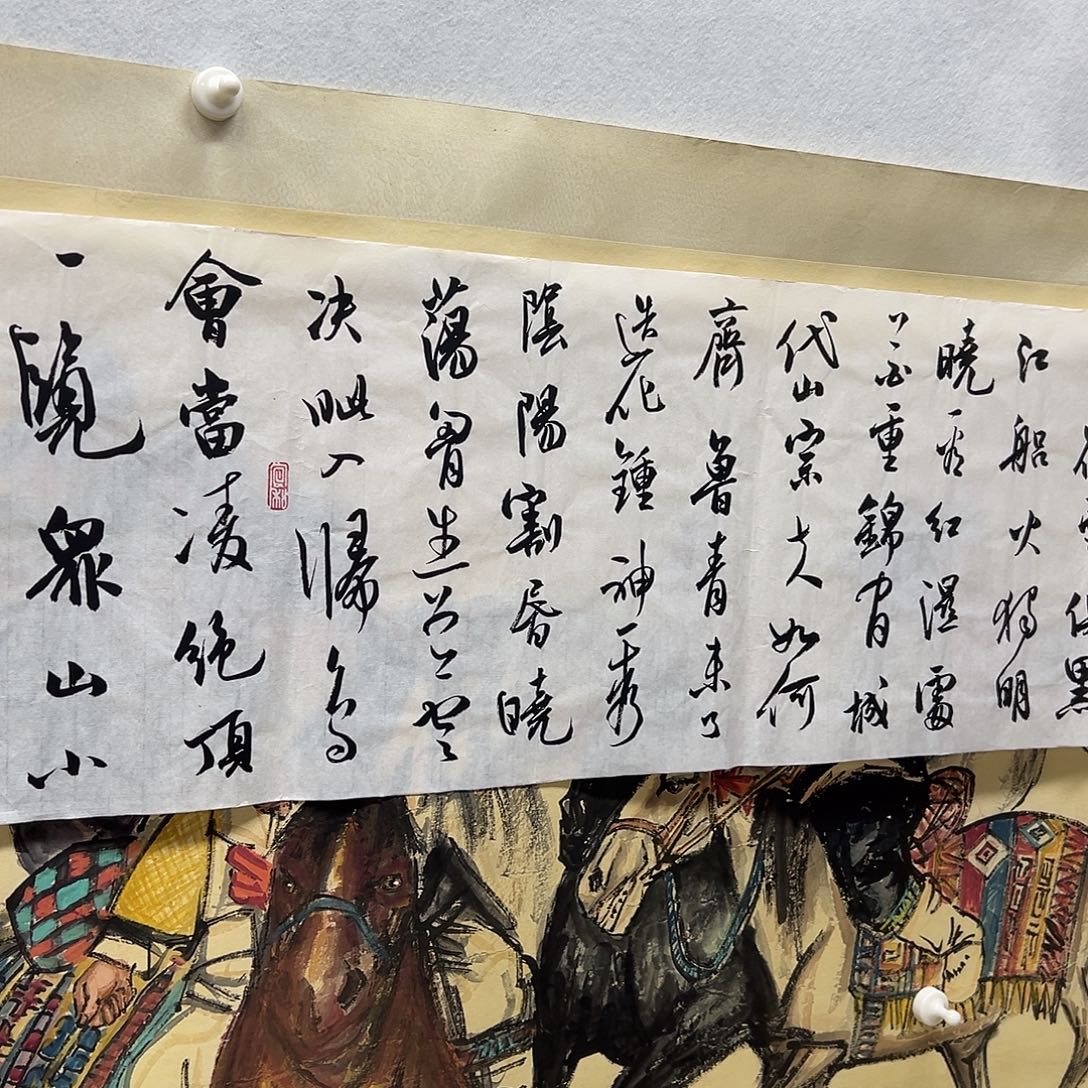 俱黑
江船火獨明
曉看紅濕處
花重錦官城
岱宗夫如何
齊魯青未了
造化鍾神秀
陰陽割昏曉
蕩胸生層雲
决眦入歸鳥
會當凌絕頂
一覽眾山小